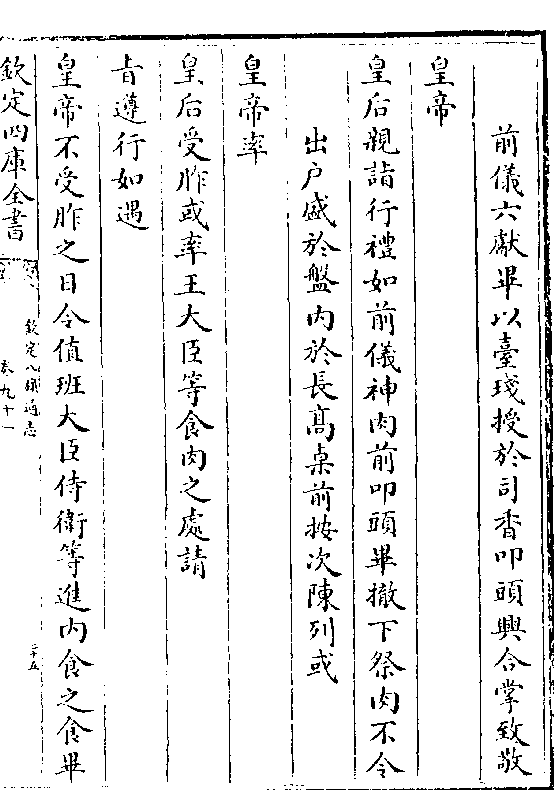 前儀六獻畢以臺琖授於司香叩頭興合掌致敬
皇帝
皇后親詣行禮如前儀神肉前叩頭畢撤下祭肉不令
出户盛於盤内於長髙桌前按次陳列或
皇帝率
皇后受胙或率王大臣等食肉之處請
旨遵行如遇
皇帝不受胙之日令值班大臣侍衛等進内食之食畢
欽定四庫全書
欽定八旗通志
卷九十一
二十五